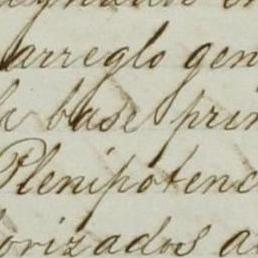 arreglo gen
la base prin
Plenipotenc
orizados a